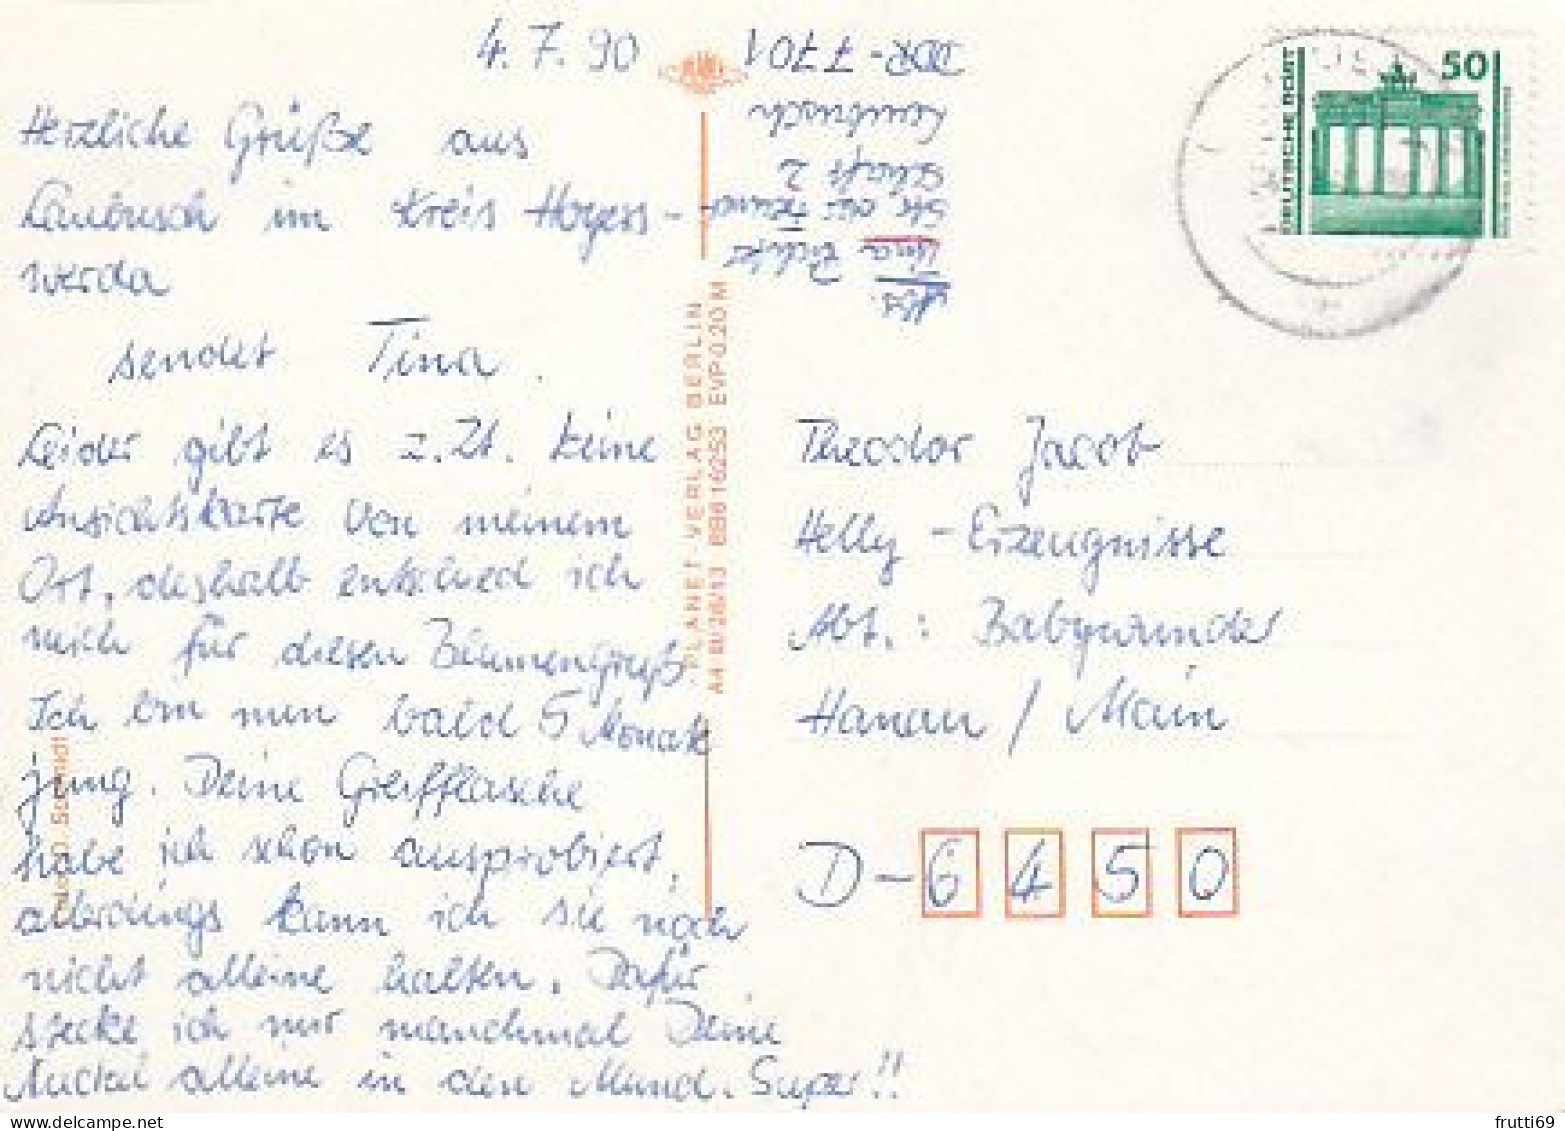 4. 7. 90
Herzliche Grüße aus
Laubusch im Kreis Hoyers-
werda
sendet Tina.
Leider gibt es z. Zt. keine
Ansichtskarte von meinem
Ort, deshalb entschied ich
mich für diesen Blumengruß.
Ich bin nun bald 5 Monate
jung. Deine Greifflasche
habe ich schon ausprobiert,
allerdings kann ich sie noch
nicht alleine halten. Dafür
stecke ich mir manchmal Deine
Nuckel alleine in den Mund. Super!!
Abs.:
Tina
Str. der Freund-
schaft 2
Laubusch
DDR-7701
PLANET-VERLAG BERLIN
EVP 0,20 M
Schmidt
DEUTSCHE POST
50
Theodor Jacob
Helly-Erzeugnisse
Abt.: Babywunder
Hanau / Main
D-6450
frutti69